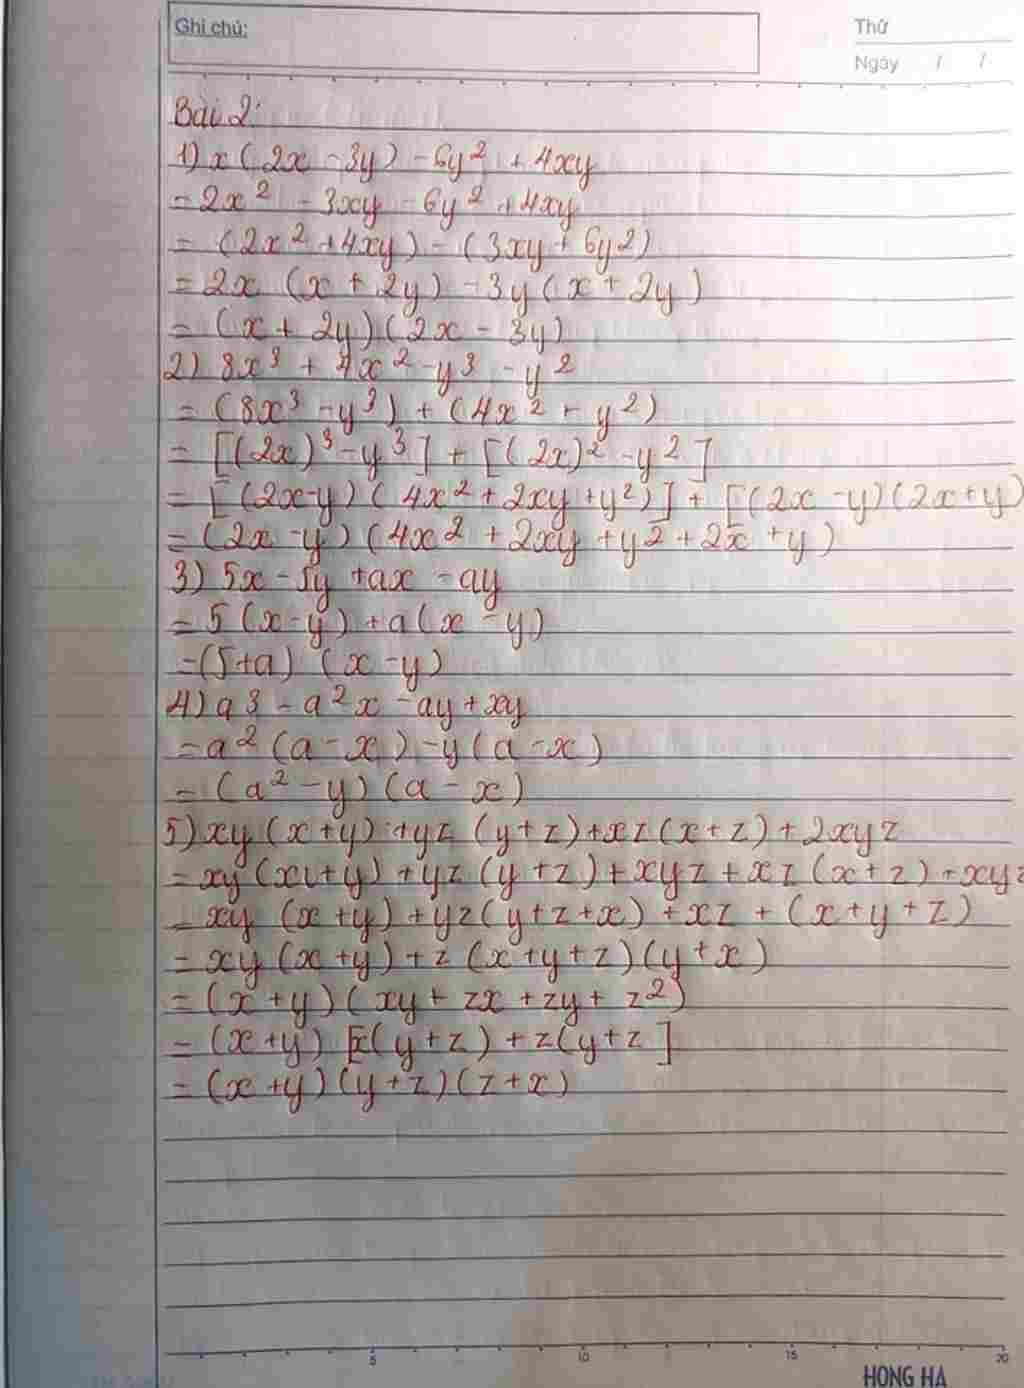 Ghi chú:
Thứ
Ngày / /
Bài 2:
1) x(2x - 3y) - 6y² + 4xy
= 2x² - 3xy - 6y² + 4xy
= (2x² + 4xy) - (3xy + 6y²)
= 2x (x + 2y) - 3y(x + 2y)
= (x + 2y)(2x - 3y)
2) 8x³ + 4x² - y³ - y²
= (8x³ - y³) + (4x² - y²)
= [(2x)³ - y³] + [(2x)² - y²]
= [(2x-y)(4x² + 2xy + y²)] + [(2x - y)(2x+y)
= (2x - y)(4x² + 2xy + y² + 2x + y)
3) 5x - 5y + ax - ay
= 5(x-y) + a(x - y)
= (5+a) (x - y)
4) a³ - a²x - ay + xy
= a² (a - x) - y(a - x)
= (a² - y)(a - x)
5) xy(x+y) + yz (y+z) + xz(x+z) + 2xyz
= xy(x+y) + yz(y+z) + xyz + xz(x+z) + xyz
= xy (x+y) + yz(y+z+x) + xz + (x+y+z)
= xy(x+y) + z (x+y+z)(y+x)
= (x+y)(xy + zx + zy + z²)
= (x+y) [x(y+z) + z(y+z]
= (x+y)(y+z)(z+x)
5 10 15 20
HONG HA